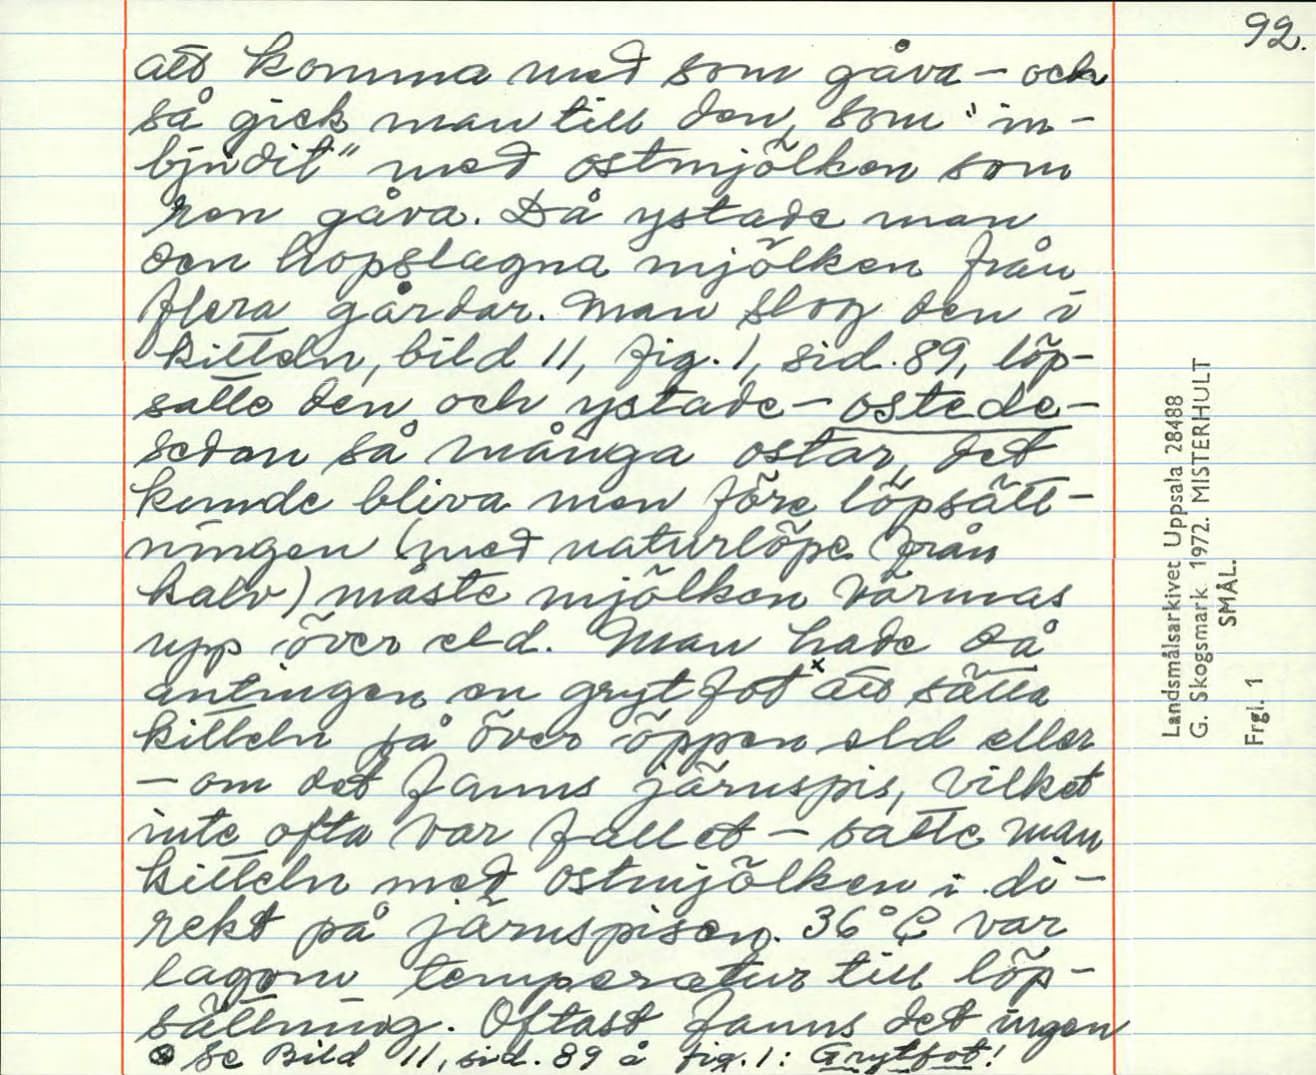 92.
att komma med som gåva - och
så gick man till den, som "in-
bjudit" med ostmjölken som
ren gåva. Då ystade man
den hopslagna mjölken från
flera gårdar. Man slog den i
kitteln, bild 11, fig. 1, sid. 89, löp-
satte den och ystade - ostede -
sedan så många ostar, det
kunde bliva men före löpsätt-
ningen (med naturlöpe från
kalv) måste mjölken värmas
upp över eld. Man hade då
antingen en grytfot x att sätta
kitteln på över öppen eld eller
- om det fanns järnspis, vilket
inte ofta var fallet - satte man
kitteln med ostmjölken i di-
rekt på järnspisen. 36° C var
lagom temperatur till löp-
sättning. Oftast fanns det ingen
Se Bild 11, sid. 89 å fig. 1: Grytfot!
Landsmålsarkivet Uppsala 28488
G. Skogsmark 1972. MISTERHULT
SMÅL.
Frgl. 1